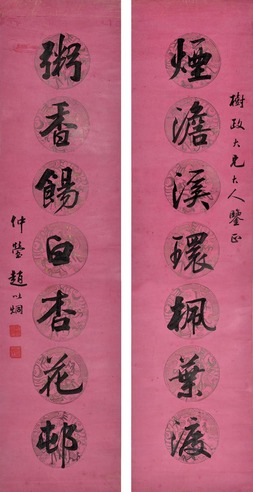 樹政大兄大人鑒正
煙澹溪環楓葉渡
粥香餳白杏花邨
仲瑩趙以烱